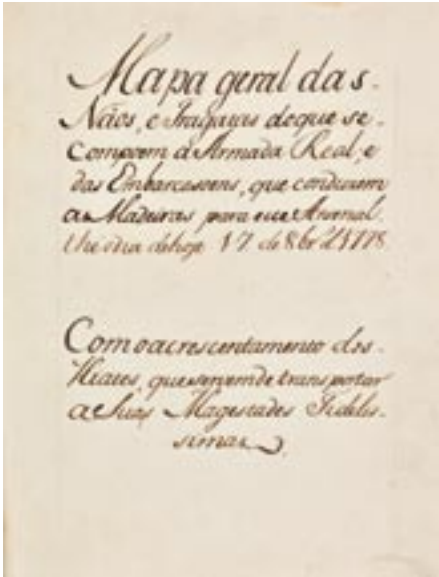 Mapa geral das
Náos, e Fragatas de que se
Compoem a Armada Real, e
das Embarcasoens, que conduzem
as Madeiras para esse Arsenal
the o dia de hoje 17 de 8br.º d 1778
Com o acrescentamento dos
Hiates, que servem de transportar
a e Suas Magestades Fidelis-
simas